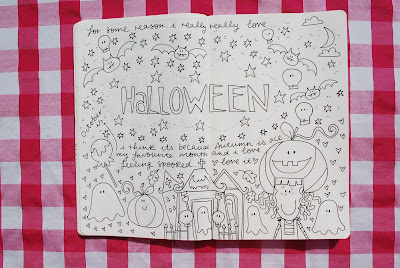 for some reason i really really love
HALLOWEEN
October
i think its because autumn is all
my favourite month and i love
feeling spooked
love it